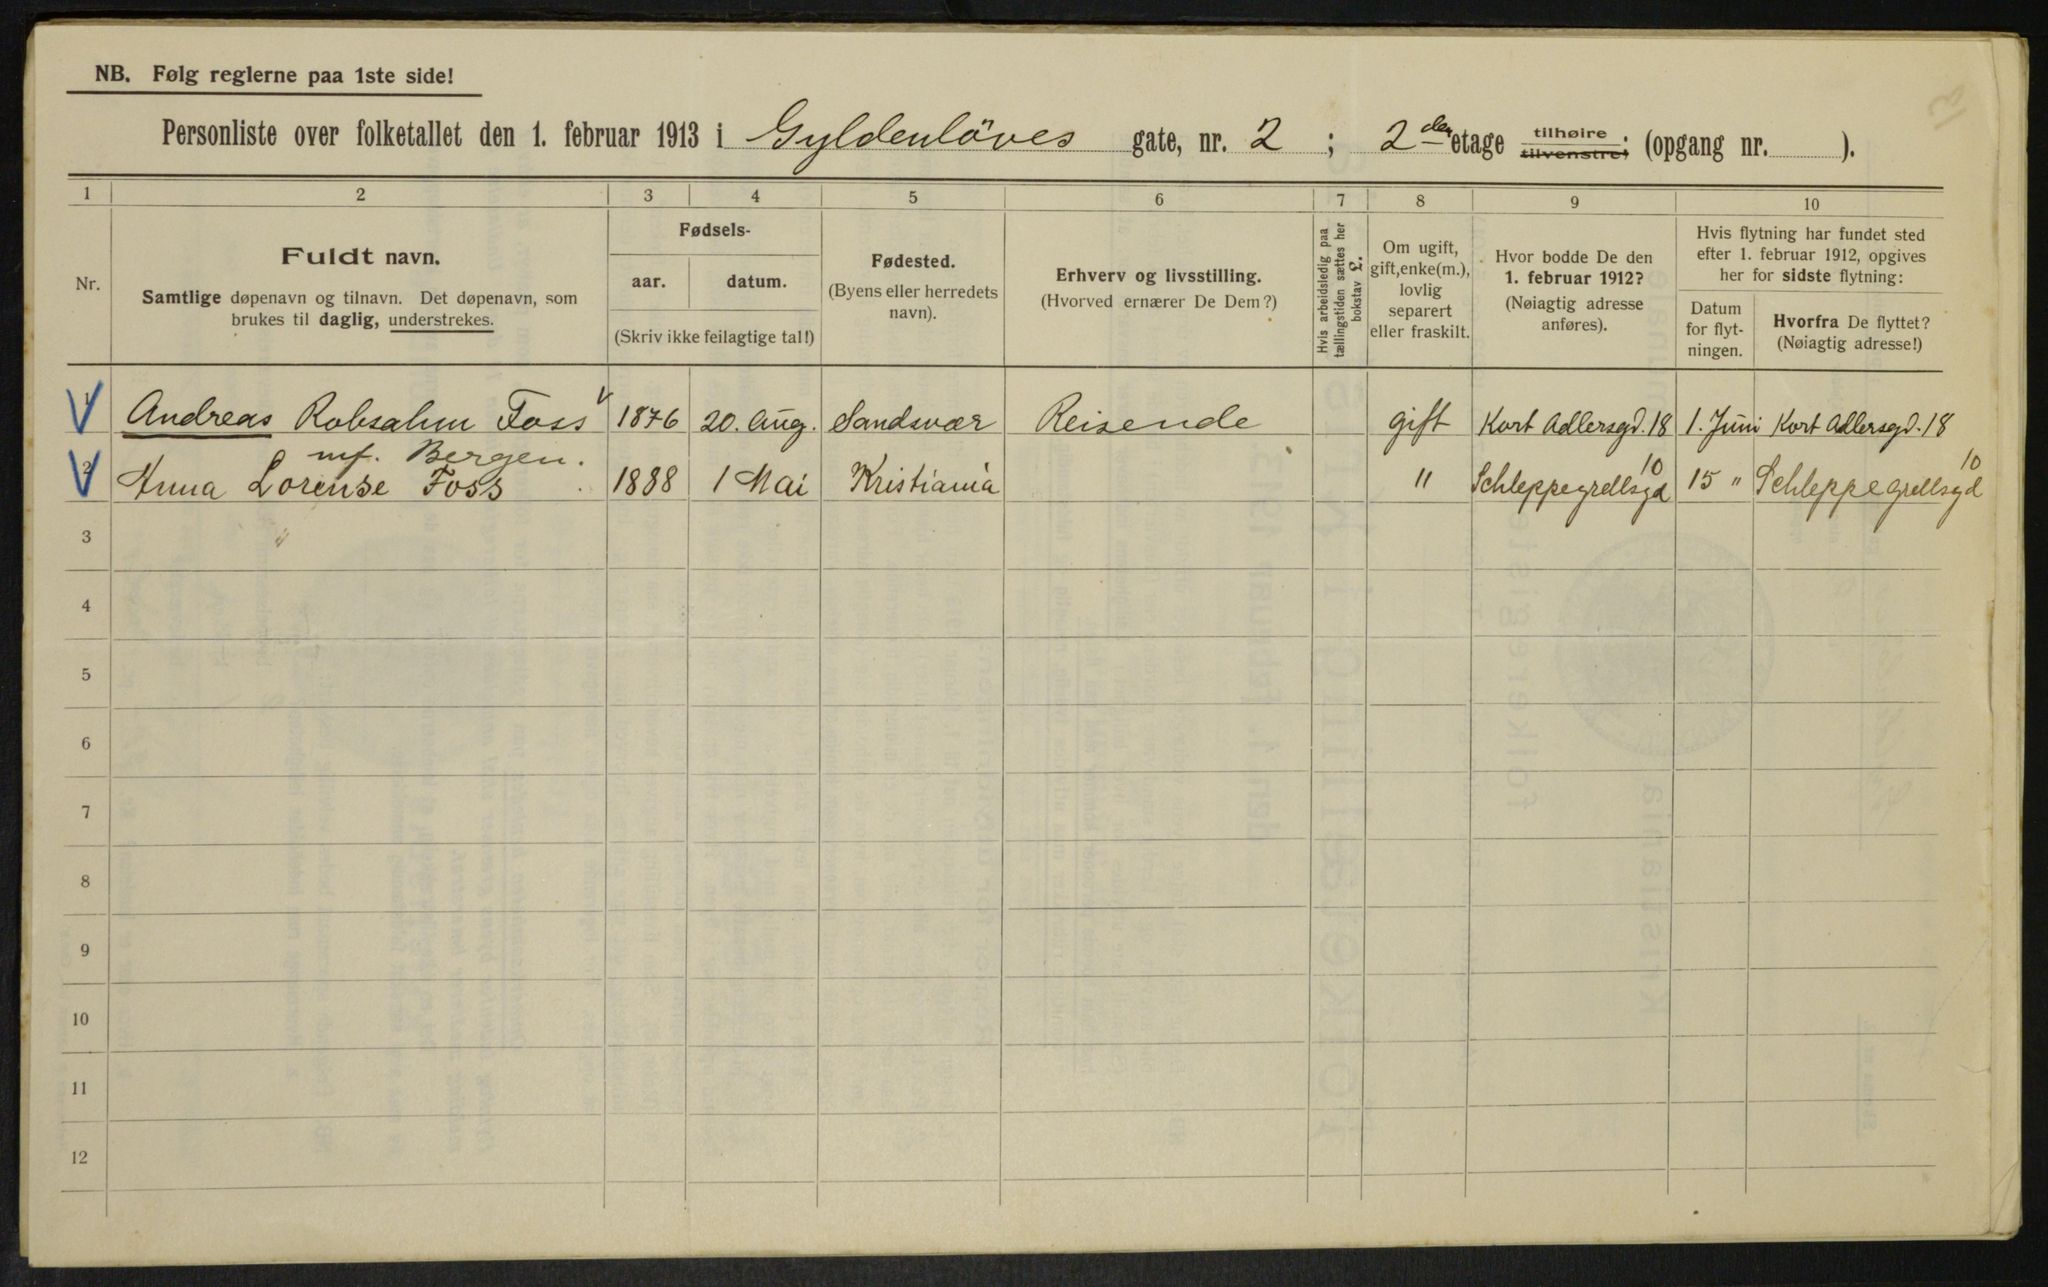 NB. Følg reglerne paa 1ste side!
Personliste over folketallet den 1. februar 1913 i Gyldenløves gate, nr. 2 ; 2den etage tilhøire tilvenstre; (opgang nr. ).
1 2 3 4 5 6 7 8 9 10
Nr.
Fuldt navn.
Samtlige døpenavn og tilnavn. Det døpenavn, som
brukes til daglig, understrekes.
Fødsels-
aar. datum.
(Skriv ikke feilagtige tal!)
Fødested.
(Byens eller herredets
navn).
Erhverv og livsstilling.
(Hvorved ernærer De Dem?)
Hvis arbeidsledig paa
tællingstiden sættes her
bokstav £.
Om ugift,
gift, enke(m.),
lovlig
separert
eller fraskilt.
Hvor bodde De den
1. februar 1912?
(Nøiagtig adresse
anføres).
Hvis flytning har fundet sted
efter 1. februar 1912, opgives
her for sidste flytning:
Datum
for flyt-
ningen.
Hvorfra De flyttet?
(Nøiagtig adresse!)
1 Andreas Robsahm Foss 1876 20. Aug. Sandsvær Reisende gift Kort Adlersgd. 18 1. Juni Kort Adlersgd. 18
mf. Bergen.
2 Anna Lorense Foss 1888 1 Mai Kristiania " Schleppegrellsgd 10 15 " Schleppegrellsgd 10
3 "
4
5
6
7
8
9
10
11
12